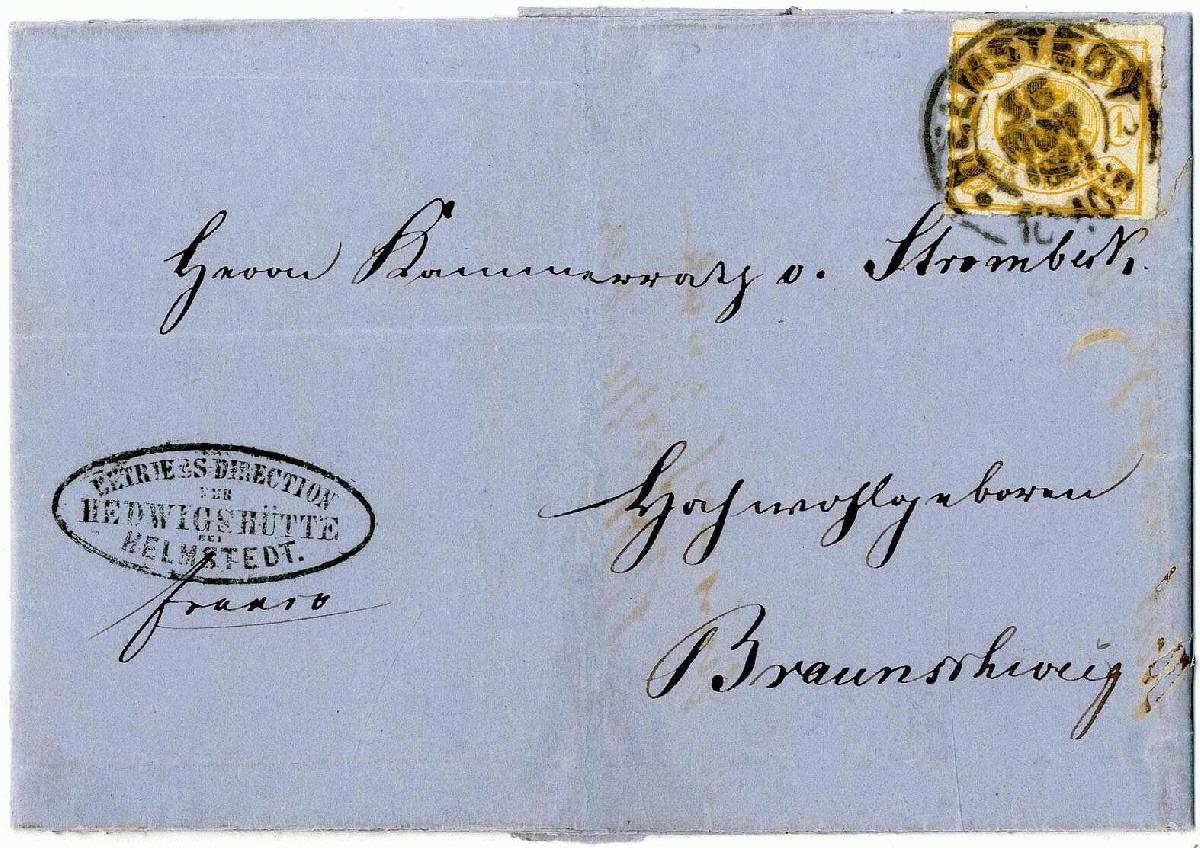 HELMSTEDT
1
Herrn Kammerrath v. Strombeck.
BETRIEBS-DIRECTION
DER
HEDWIGSHÜTTE
BEI
HELMSTEDT.
franco
Hochwohlgeboren
Braunschweig